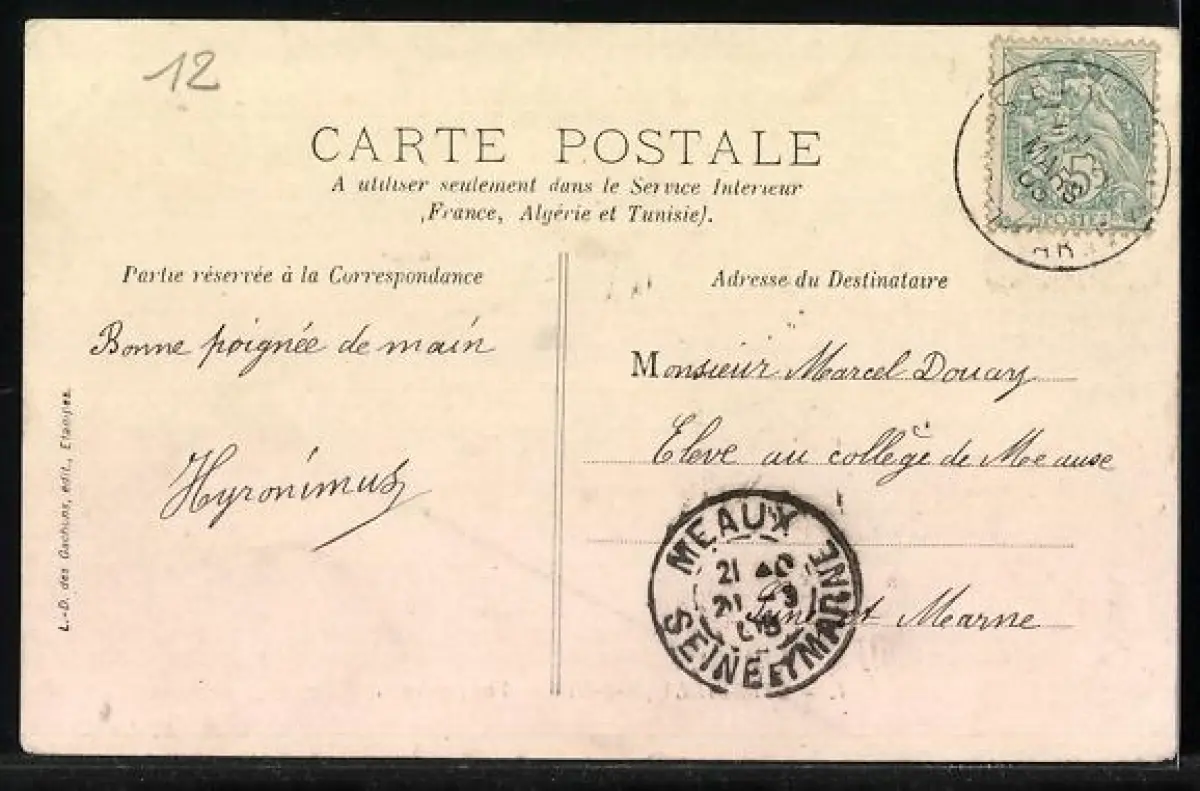 12
CARTE POSTALE
A utiliser seulement dans le Service Interieur
(France, Algérie et Tunisie).
Partie réservée à la Correspondance
Adresse du Destinataire
Bonne poignée de main
Hyronimus
Monsieur Marcel Douay
Eleve au collège de Meause
Seine et Marne
MEAUX
21
SEINE ET MARNE
MARS
03
5
POSTES
L.-D. des Gachons, édit., Etampes.